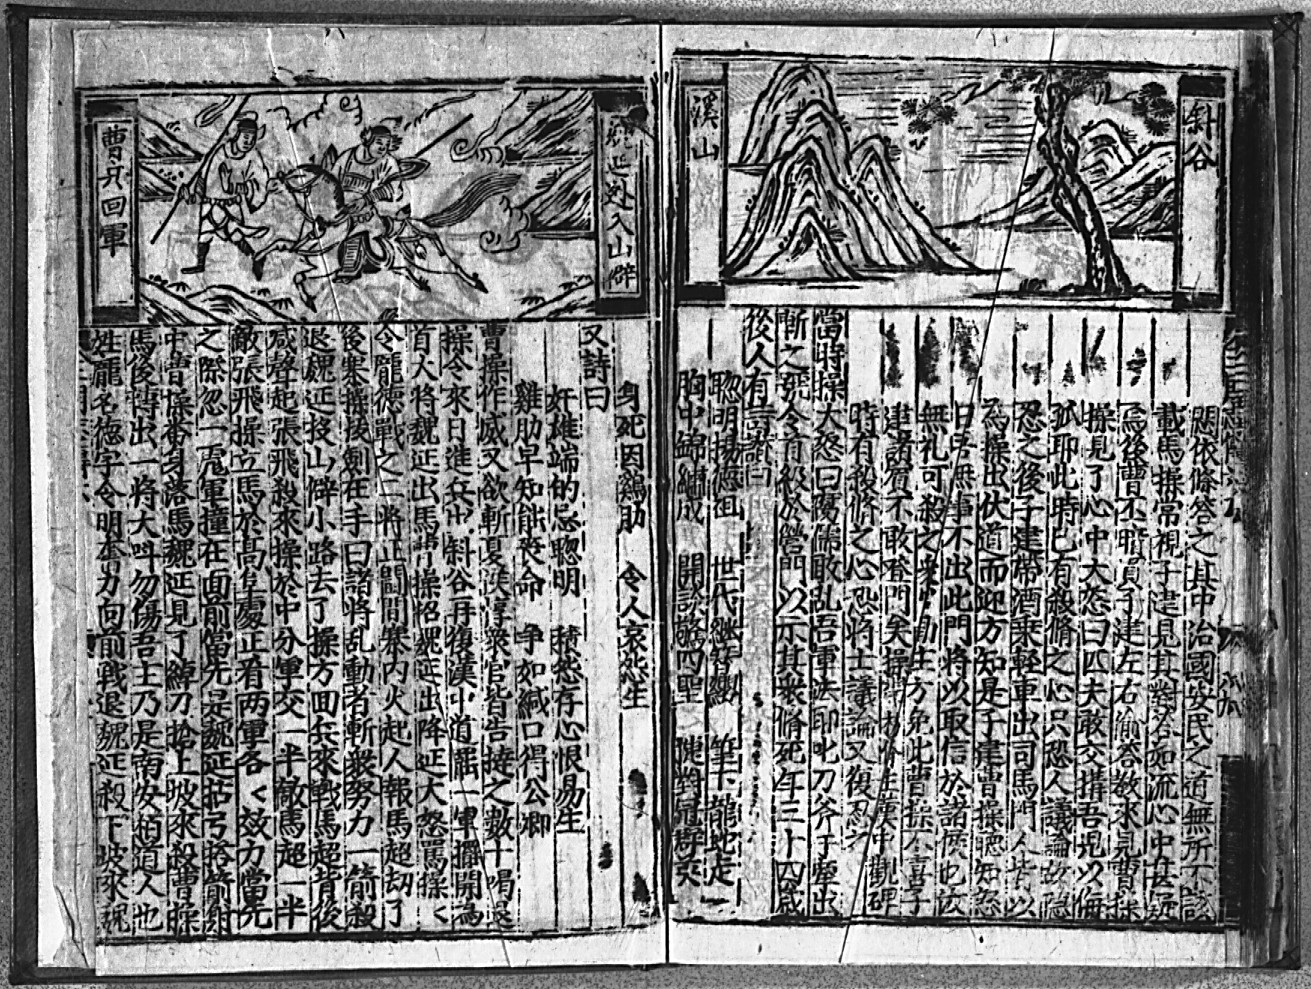 斜谷
溪山
悉依條答之其中治國安民之道無所不該
載馬操常視子建見其對答如流心中甚疑
焉後曹丕暗買子建左右偷答教求見曹操
操見了心中大怒曰匹夫敢交搆吾兒以侮
孤耶此時已有殺脩之心只恐人議論故隱
忍之後子建帶酒乘輕車出司馬門人皆以
為操出伏道而迎方知是子建曹操聽知忽
日吾無事不出此門將以取信於諸侯也汝
無礼可殺之衆官勸住方免此曹操不喜子
建諸賢不敢登門矣操
時有殺脩之心恐將士議論又復忍之
當時操大怒曰腐儒敢乱吾軍法即叱刀斧手壅出
斬之號令首級於營門以示其衆脩死年三十四歲
後人有詩曰
聰明楊德祖 世代繼簪纓 筆下龍蛇走
胸中錦綉成 開談驚四聖 陳對冠群英
身死因鷄肋 令人哀死生
又詩曰
奸雄端的忌聰明 積怨存心恨易生
雞肋早知能喪命 争如緘口得公卿
曹操作威又欲斬夏侯惇衆官皆告捷之數十喝退
操令來日進兵出斜谷再復漢中道罷一軍擺開為
首大將魏延出馬曹操招魏延出降延大怒罵操く
令龐德戰之二將正鬪間寨内火起人報馬超劫了
後寨操拔劍在手曰諸將乱動者斬衆努力一箭殺
退魏延投山僻小路去了操方回兵來戰馬超背後
喊聲起張飛殺來操於中分軍交一半敵馬超一半
敵張飛操立馬於高阜處正看两軍各く効力當先
之際忽一彪軍撞在面前當先是魏延拈弓搭箭射
中曹操番身落馬魏延見了綽刀搶上坡來殺曹操
馬後轉出一將大呌勿傷吾主乃是南安狟道人也
姓龐名德字令明奮力向前戰退魏延殺下坡來魏
魏延趕入山僻
曹兵回軍